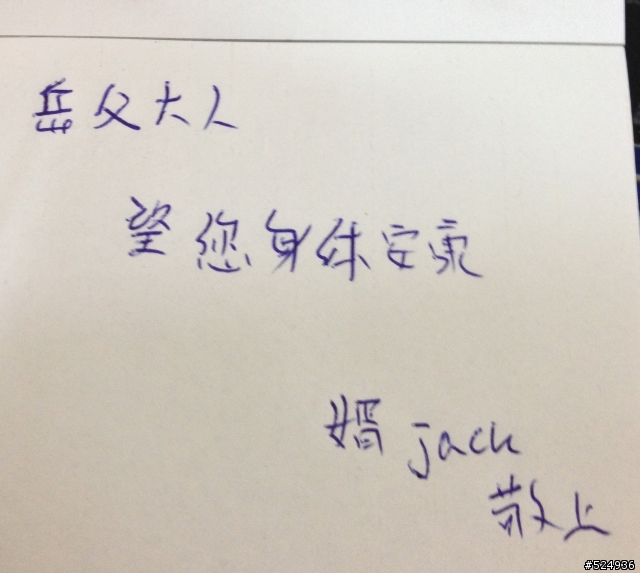 岳父大人
望您身体安康
婿 jack
敬上
#524936